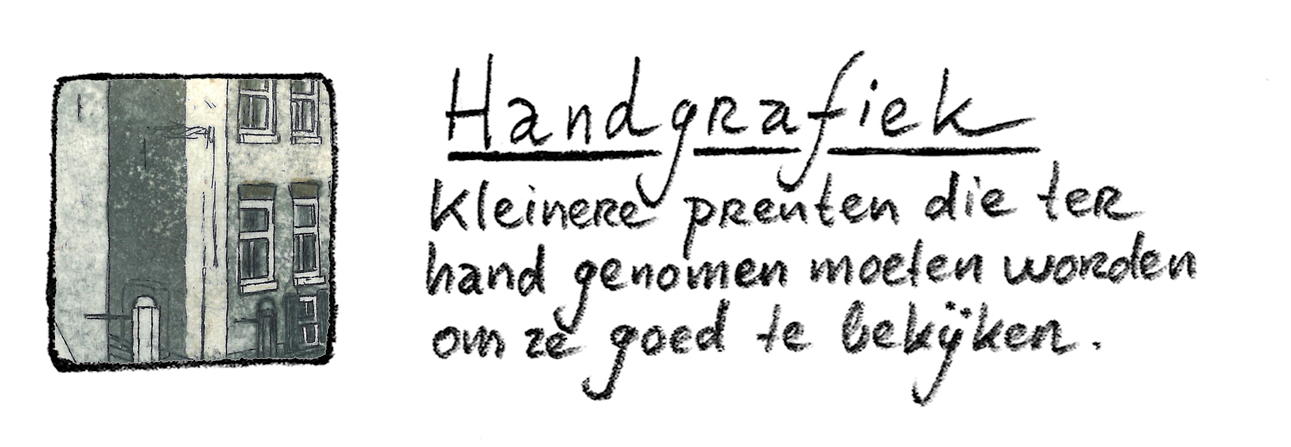 Handgrafiek
Kleinere prenten die ter
hand genomen moeten worden
om ze goed te bekijken.